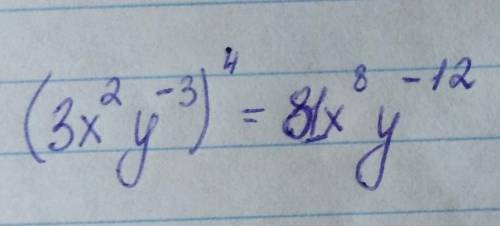 (3x²y⁻³)⁴ = 81x⁸y⁻¹²